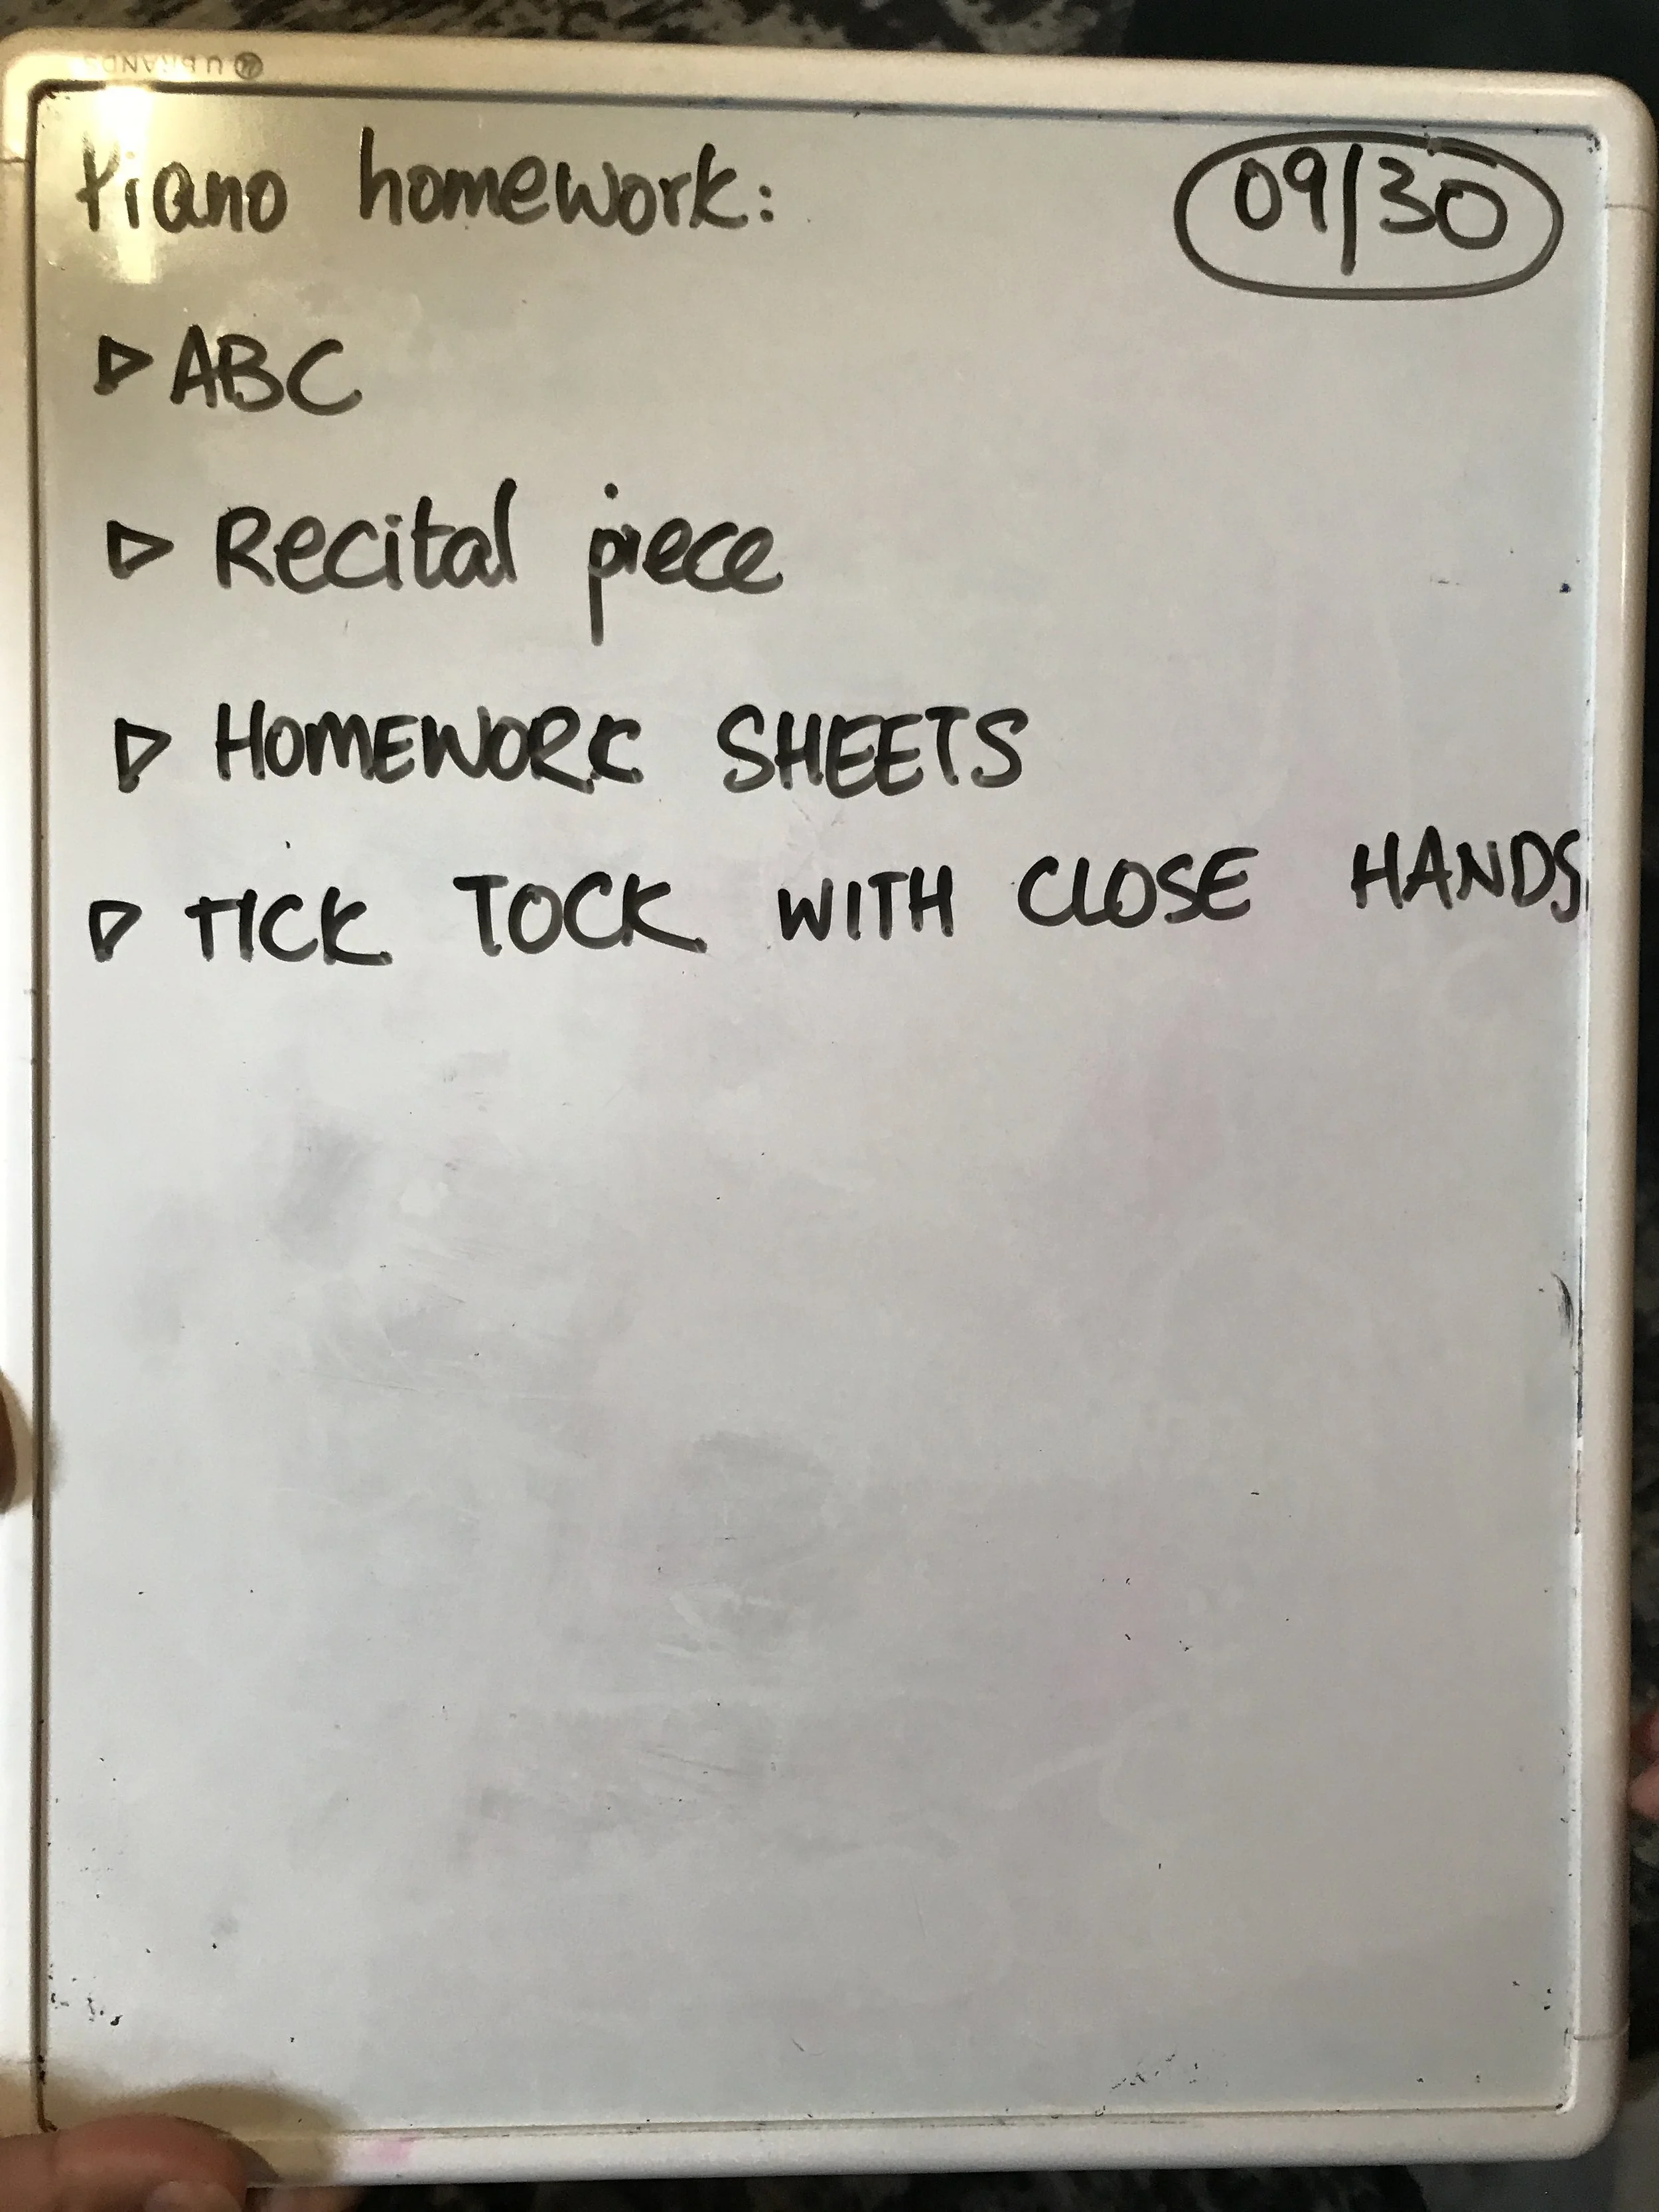 U BRANDS
Piano homework: 09/30
▷ ABC
▷ Recital piece
▷ HOMEWORK SHEETS
▷ TICK TOCK WITH CLOSE HANDS